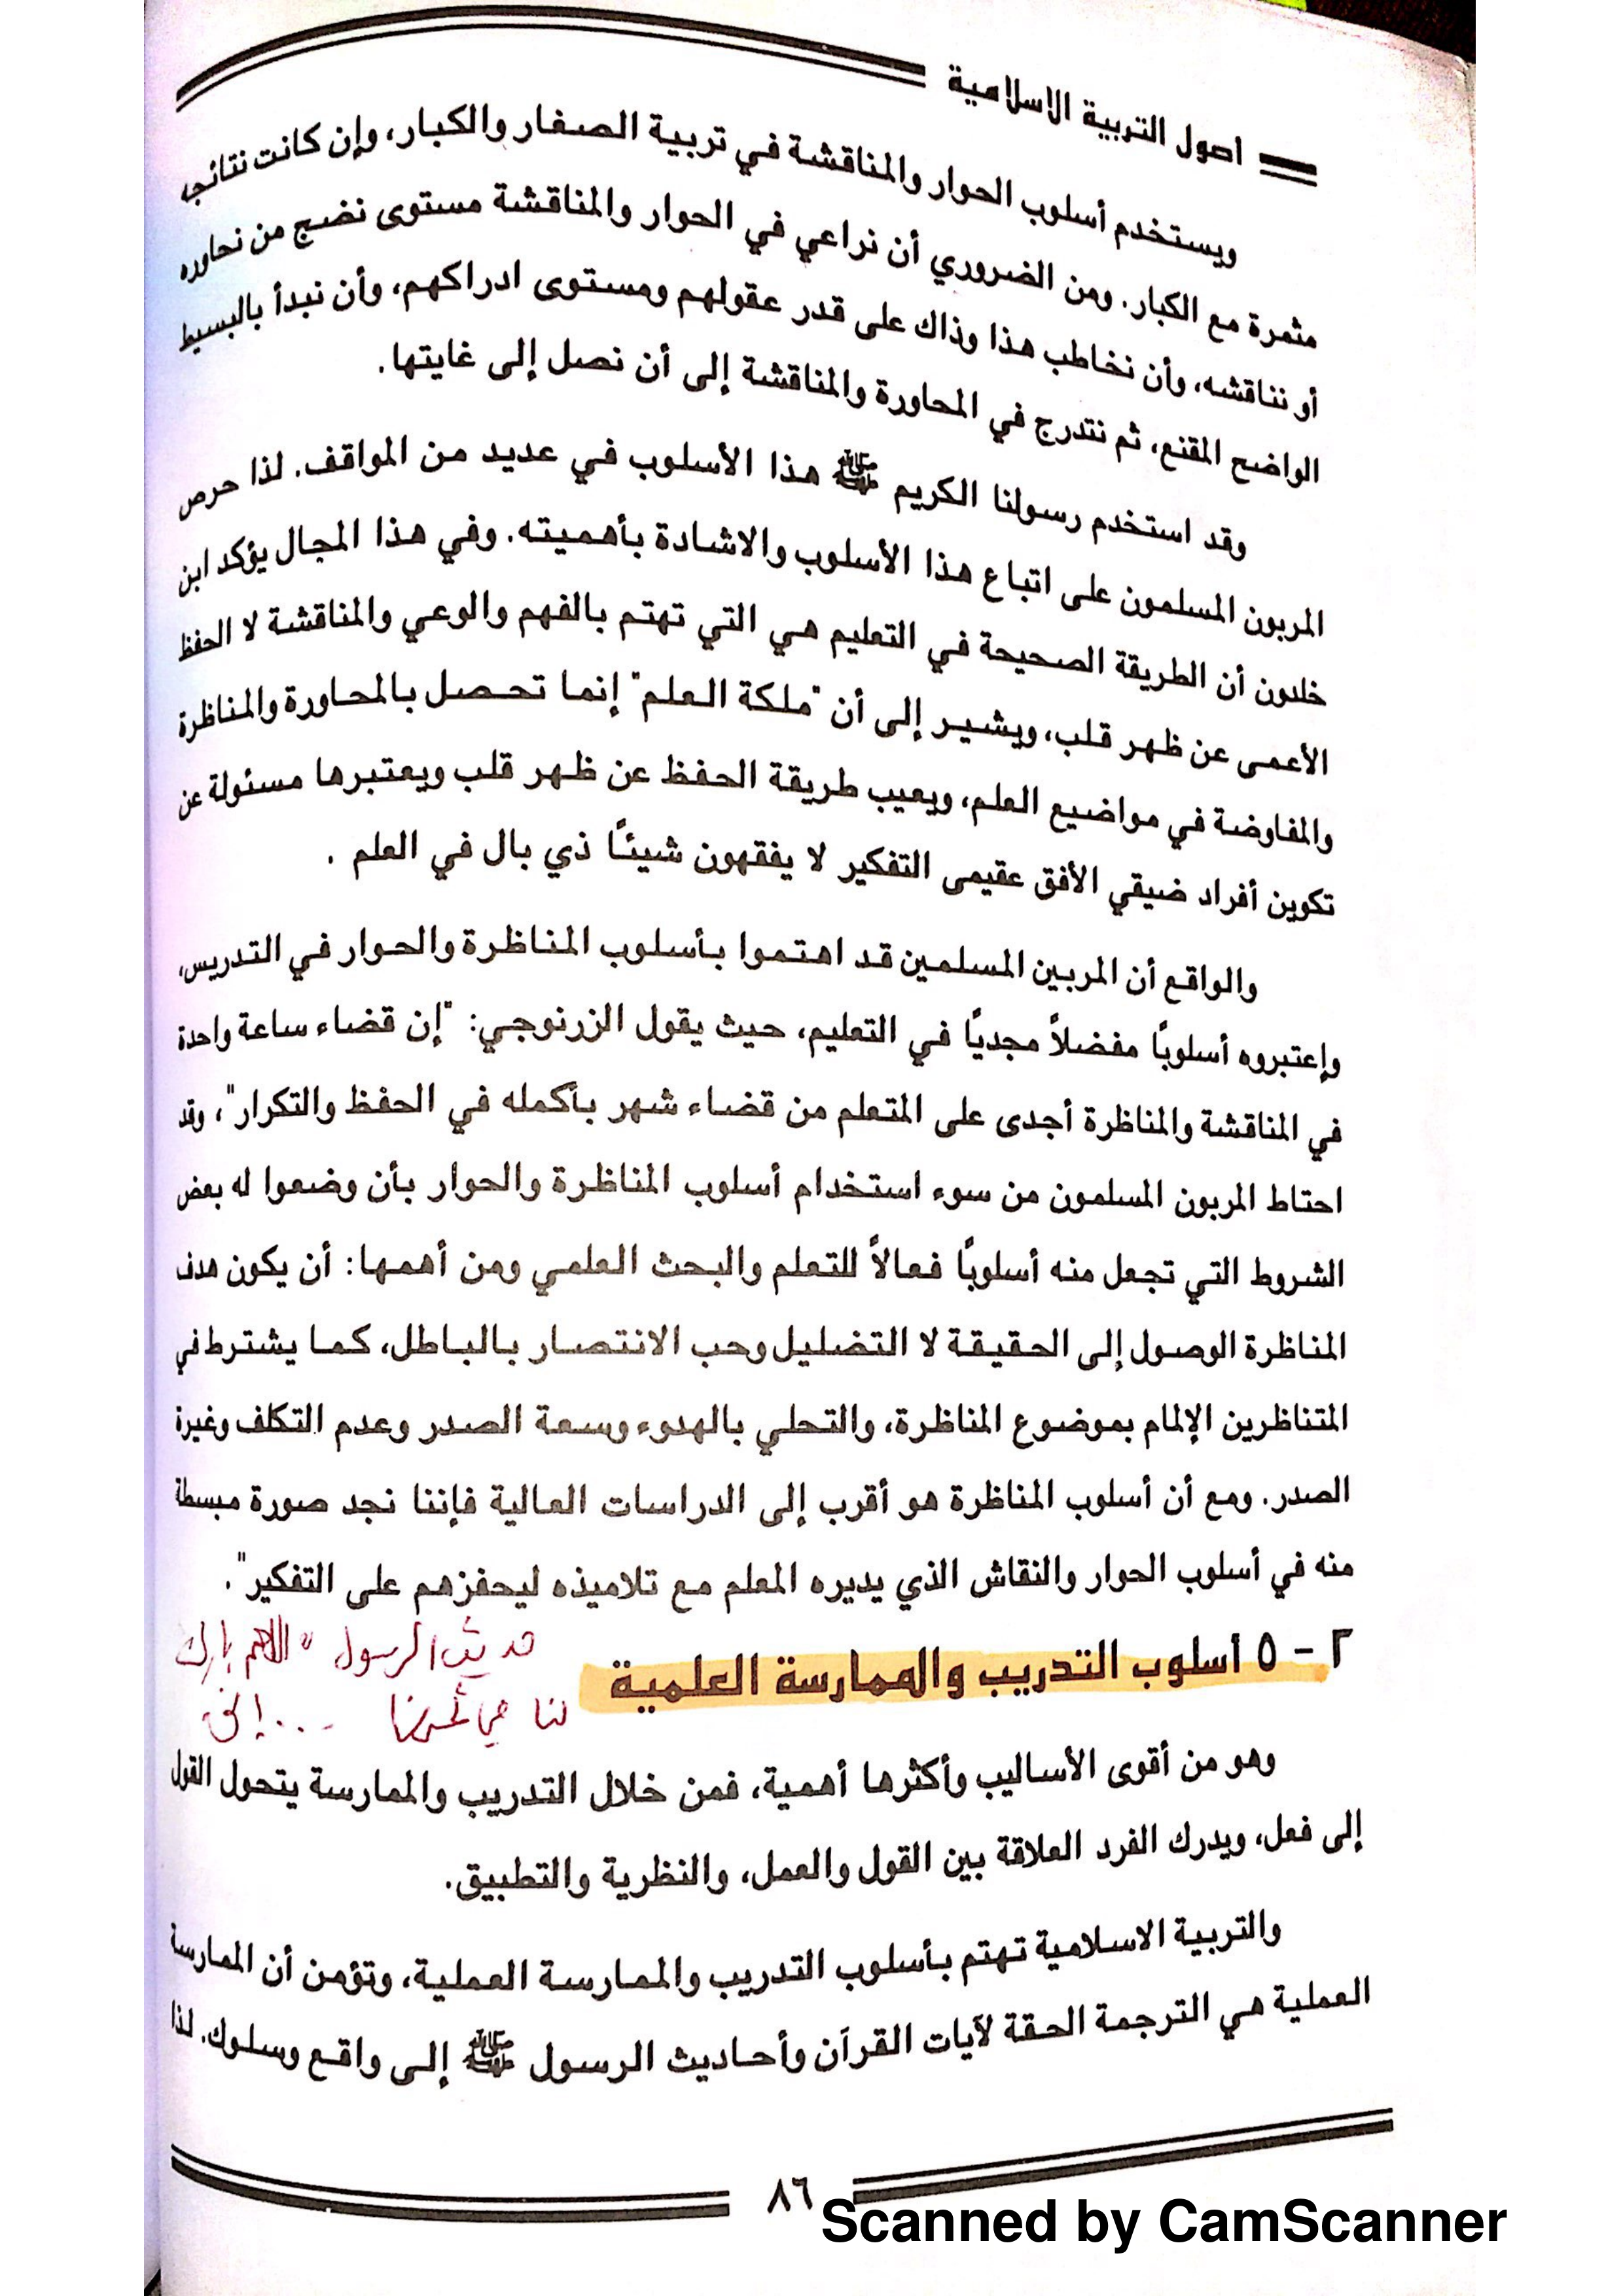 اصول التربية الاسلامية
ويستخدم أسلوب الحوار والمناقشة في تربية الصغار والكبار، وإن كانت نتائجه
مثمرة مع الكبار. ومن الضروري أن نراعي في الحوار والمناقشة مستوى نضج من نحاوره
أو نناقشه، وأن نخاطب هذا وذاك على قدر عقولهم ومستوى ادراكهم، وأن نبدأ بالبسيط
الواضح المقنع، ثم نتدرج في المحاورة والمناقشة إلى أن نصل إلى غايتها.
وقد استخدم رسولنا الكريم ﷺ هذا الأسلوب في عديد من المواقف. لذا حرص
المربون المسلمون على اتباع هذا الأسلوب والاشادة بأهميته. وفي هذا المجال يؤكد ابن
خلدون أن الطريقة الصحيحة في التعليم هي التي تهتم بالفهم والوعي والمناقشة لا الحفظ
الأعمى عن ظهر قلب، ويشير إلى أن "ملكة العلم" إنما تحصل بالمحاورة والمناظرة
والمفاوضة في مواضيع العلم، ويعيب طريقة الحفظ عن ظهر قلب ويعتبرها مسئولة عن
تكوين أفراد ضيقي الأفق عقيمى التفكير لا يفقهون شيئًا ذي بال في العلم .
والواقع أن المربين المسلمين قد اهتموا بأسلوب المناظرة والحوار في التدريس،
وإعتبروه أسلوبًا مفضلاً مجديًا في التعليم، حيث يقول الزرنوجي: "إن قضاء ساعة واحدة
في المناقشة والمناظرة أجدى على المتعلم من قضاء شهر بأكمله في الحفظ والتكرار"، وقد
احتاط المربون المسلمون من سوء استخدام أسلوب المناظرة والحوار بأن وضعوا له بعض
الشروط التي تجعل منه أسلوبًا فعالاً للتعلم والبحث العلمي ومن أهمها: أن يكون هدف
المناظرة الوصول إلى الحقيقة لا التضليل وحب الانتصار بالباطل، كما يشترط في
المتناظرين الإلمام بموضوع المناظرة، والتحلي بالهدوء وسعة الصدر وعدم التكلف وغيرة
الصدر. ومع أن أسلوب المناظرة هو أقرب إلى الدراسات العالية فإننا نجد صورة مبسطة
منه في أسلوب الحوار والنقاش الذي يديره المعلم مع تلاميذه ليحفزهم على التفكير".
٢ - ٥ أسلوب التدريب والممارسة العلمية
حديث الرسول "اللهم بارك
لنا في تمرنا ... إلخ
وهو من أقوى الأساليب وأكثرها أهمية، فمن خلال التدريب والممارسة يتحول القول
إلى فعل، ويدرك الفرد العلاقة بين القول والعمل، والنظرية والتطبيق.
والتربية الاسلامية تهتم بأسلوب التدريب والممارسة العملية، وتؤمن أن الممارسة
العملية هي الترجمة الحقة لآيات القرآن وأحاديث الرسول ﷺ إلى واقع وسلوك. لذا
٨٦
Scanned by CamScanner